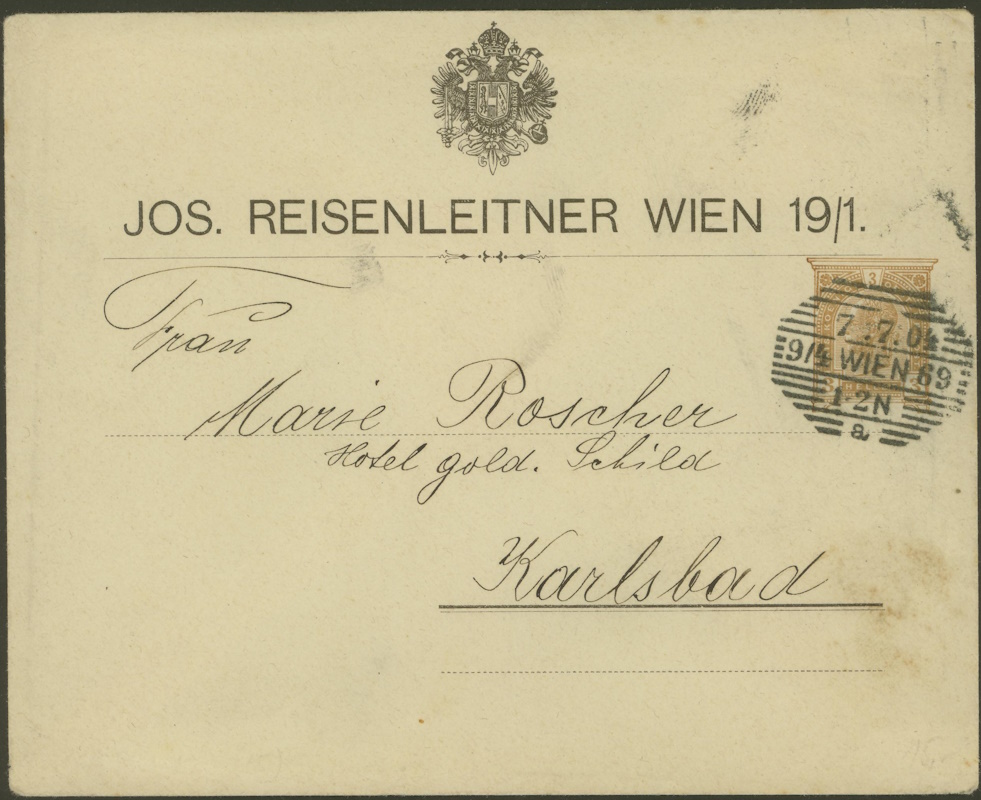 JOS. REISENLEITNER WIEN 19/1.
3
Frau
7. 7. 04
9/4 WIEN 69
1-2N
a
3 3
Marie Roscher
Hotel gold. Schild
Karlsbad